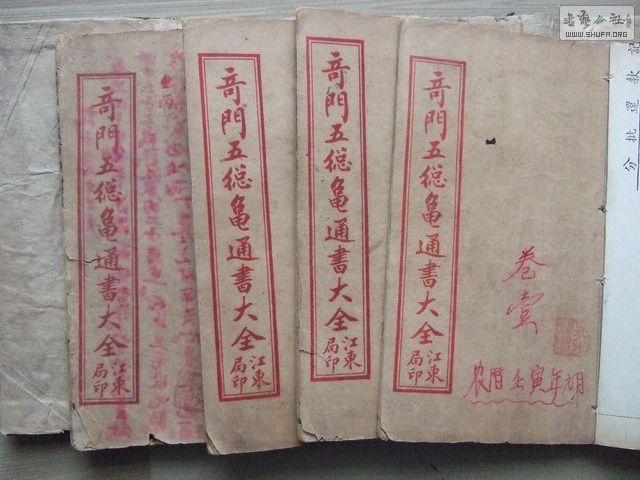 奇門五總龜通書大全
江東
局印
奇門五總龜通書大全
江東
局印
奇門五總龜通書大全
江東
局印
奇門五總龜通書大全
江東
局印
卷壹
农曆壬寅年九月
分批還款記
书艺公社
WWW.SHUFA.ORG